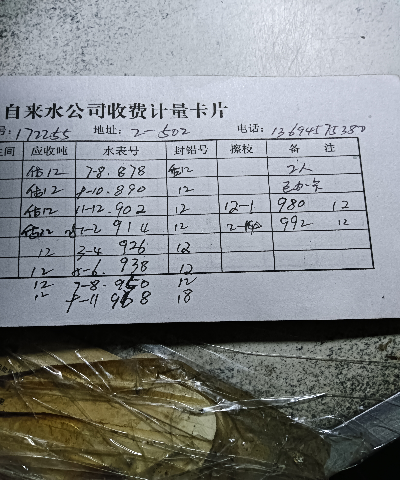 自来水公司收费计量卡片
号: 172255 地址: 2-502 电话: 13694575380
间 应收吨 水表号 封铅号 擦校 备 注
估12 7-8. 878 估12 2人
估12 9-10. 890 12
估12 11-12. 902 12 12-1 980 12
估12 1-2 914 12 2- 992 12
12 3-4 926 12
12 5-6. 938 12
12 7-8. 950 12
12 9-11 968 18